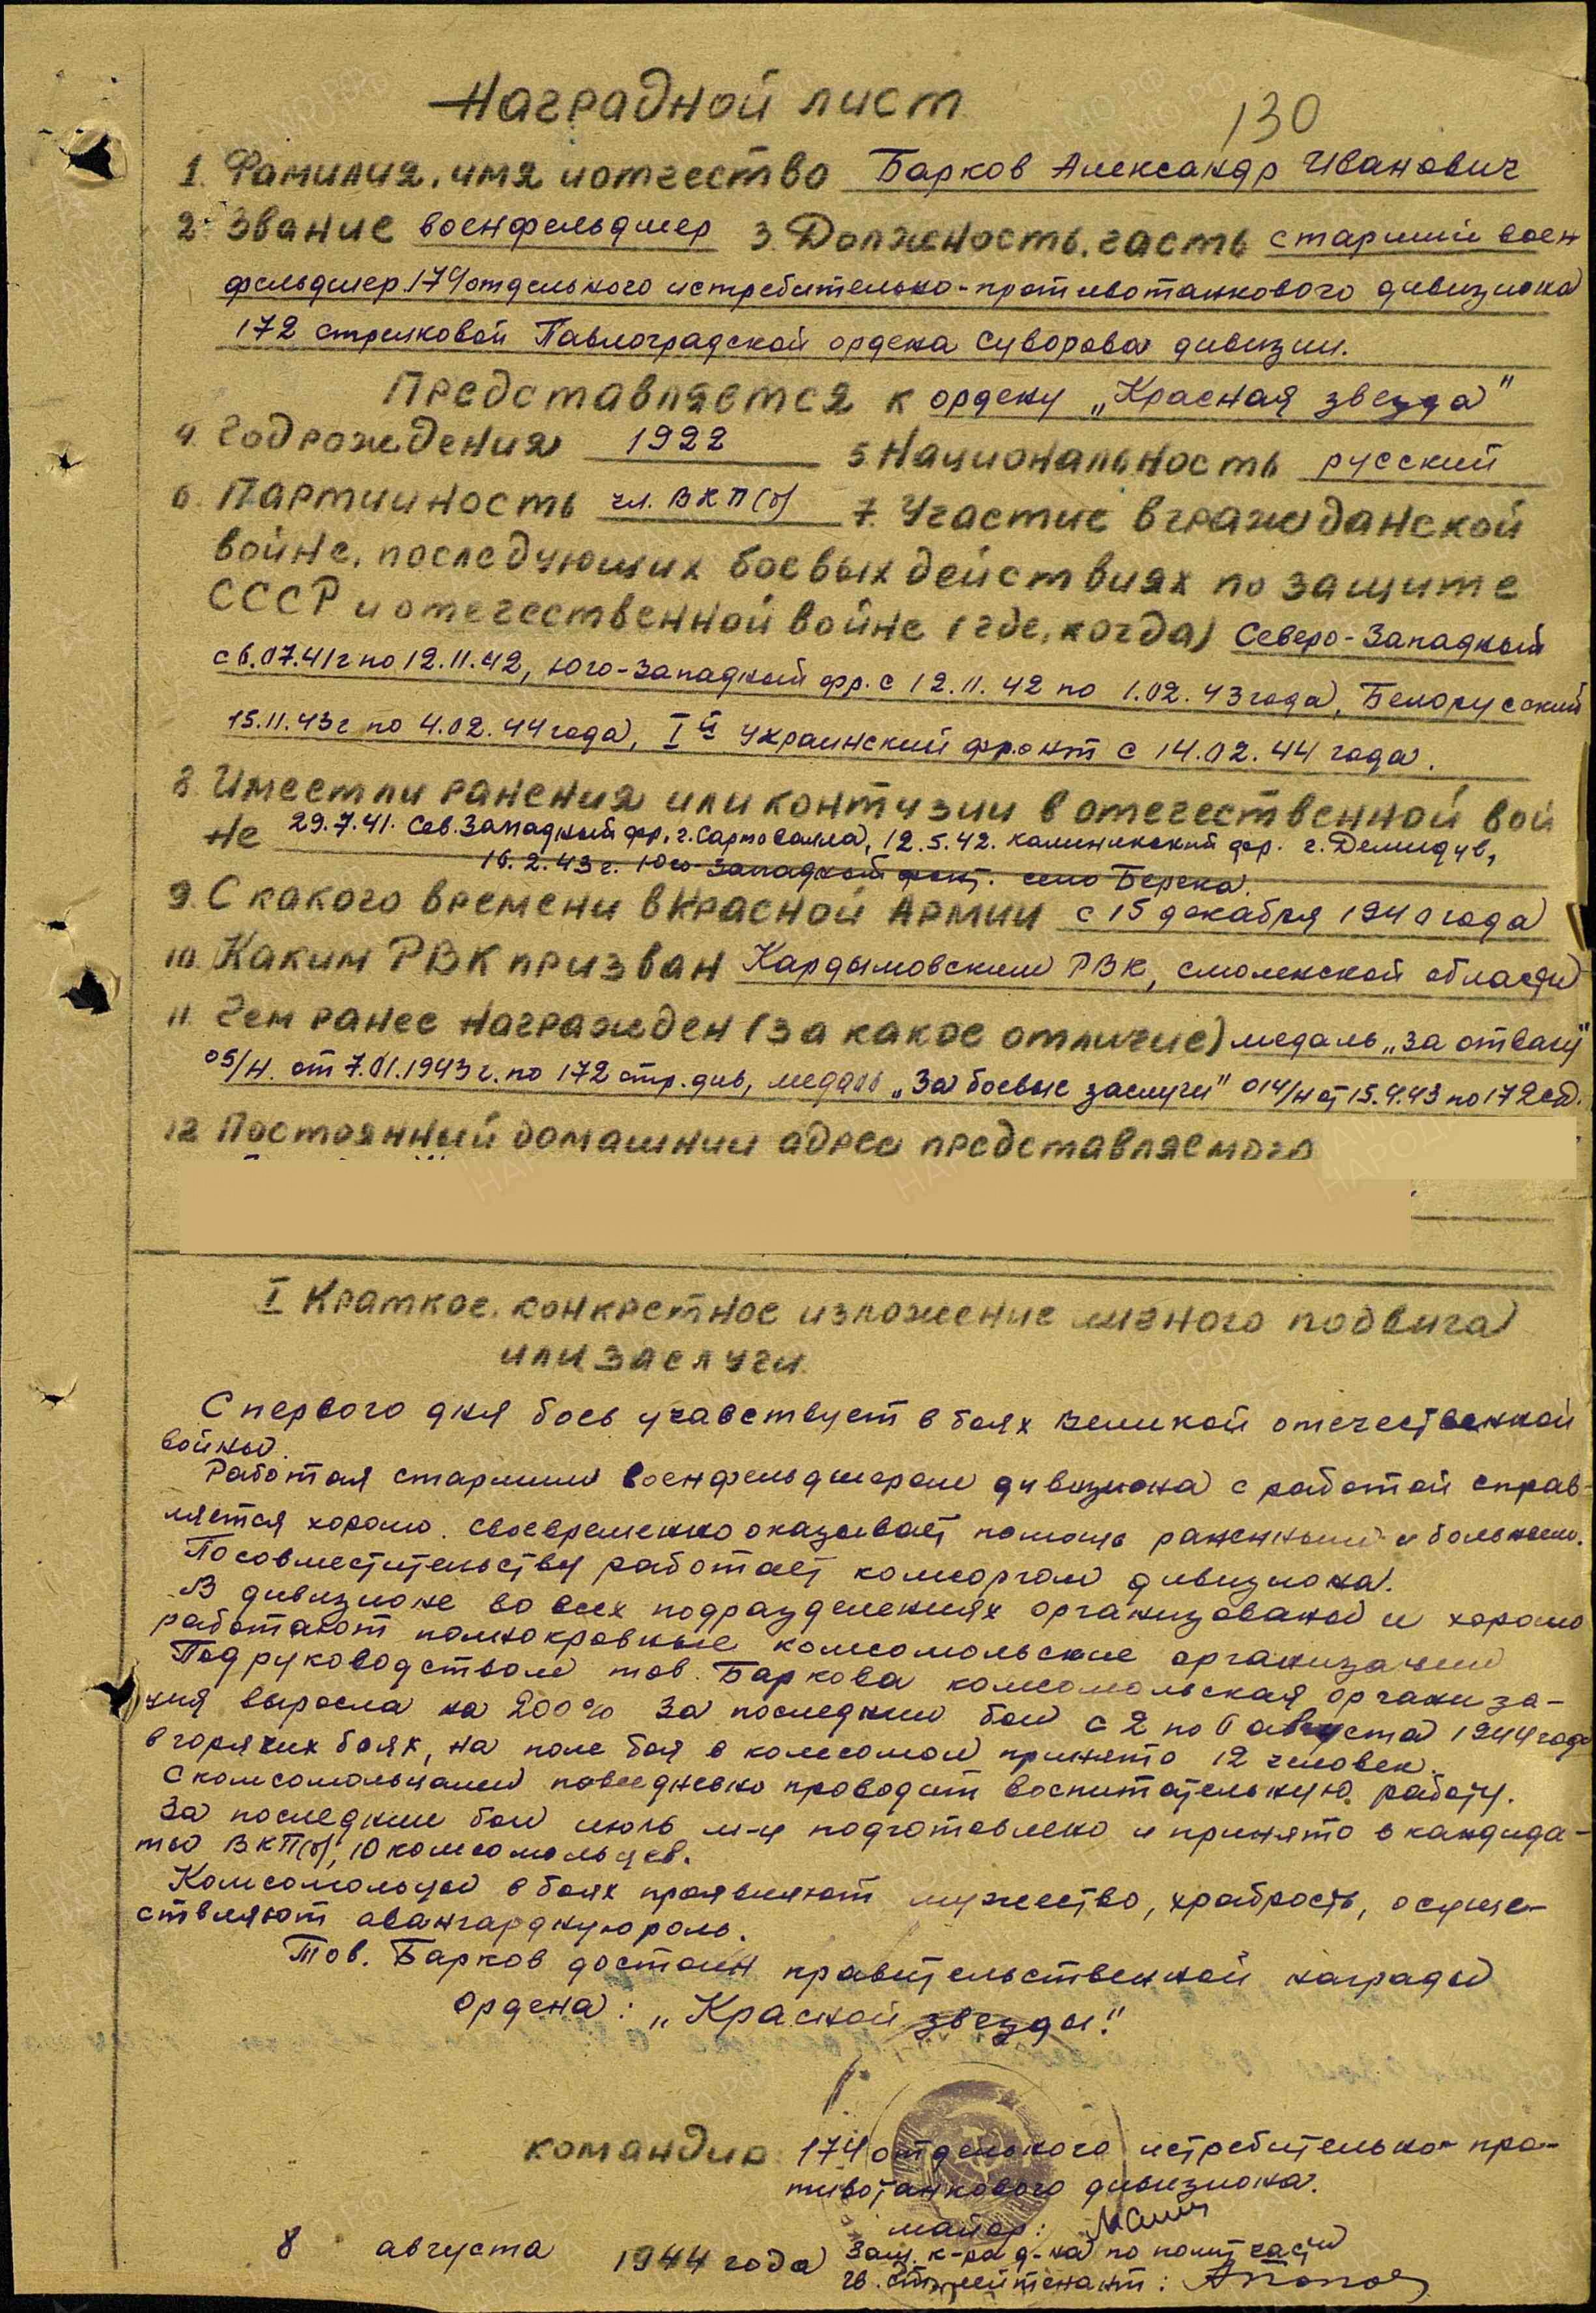 Наградной лист
130
1. Фамилия, имя и отчество Барков Александр Иванович
2. Звание военфельдшер 3. Должность, часть старший воен
фельдшер 174 отдельного истребительно-противотанкового дивизиона
172 стрелковой Павлоградской ордена Суворова дивизии.
Представляется к ордену „Красная звезда"
4. Год рождения 1922 5. Национальность русский
6. Партийность чл. ВКП(б) 7. Участие в гражданской
войне, последующих боевых действиях по защите
СССР и отечественной войне (где, когда) Северо-Западный
с 6.07.41г по 12.11.42, Юго-Западный фр. с 12.11.42 по 1.02.43 года, Белорусский
15.11.43г по 4.02.44 года, Iй Украинский фронт с 14.02.44 года.
8. Имеет ли ранения или контузии в отечественной вой
не 29.7.41. Сев. Западный фр. г. Сартовалла, 12.5.42. Калининский фр. г. Демидув,
16.2.43г. Юго-Западный фрт. село Берека.
9. С какого времени в Красной Армии с 15 декабря 1940 года
10. Каким РВК призван Кардымовским РВК, смоленской области
11. Чем ранее награжден (за какое отличие) медаль „За отвагу"
05/н. от 7.01.1943г. по 172 стр. див, медаль „За боевые заслуги" 014/н от 15.9.43 по 172 сд.
12 Постоянный домашний адрес представляемого
I Краткое, конкретное изложение личного подвига
или заслуги
С первого дня боев учавствует в боях великой отечественной
войны.
Работая старшим военфельдшером дивизиона с работой справ-
ляется хорошо. своевременно оказывает помощь раненным и больным.
По совместительству работает комсоргом дивизиона.
В дивизионе во всех подразделениях организованы и хорошо
работают полнокровные комсомольские организации
Под руководством тов. Баркова комсомольская организа-
ция выросла на 200% За последнии бои с 2 по 6 августа 1944 года
в горячих боях, на поле боя в комсомол принято 12 человек.
С комсомольцами повседневно проводит воспитательную работу.
За последнии бои июль м-ц подготовлено и принято в кандида-
ты ВКП(б), 10 комсомольцев.
Комсомольцы в боях проявляют мужество, храбрость, осуще-
ствляют авангардную роль.
Тов. Барков достоин правительственной награды
ордена: „Красной звезды."
командир 174 отдельного истребительно-про-
тивотанкового дивизиона.
майор:
8 августа 1944 года Зам. к-ра д-на по полит части
гв. ст. лейтенант: